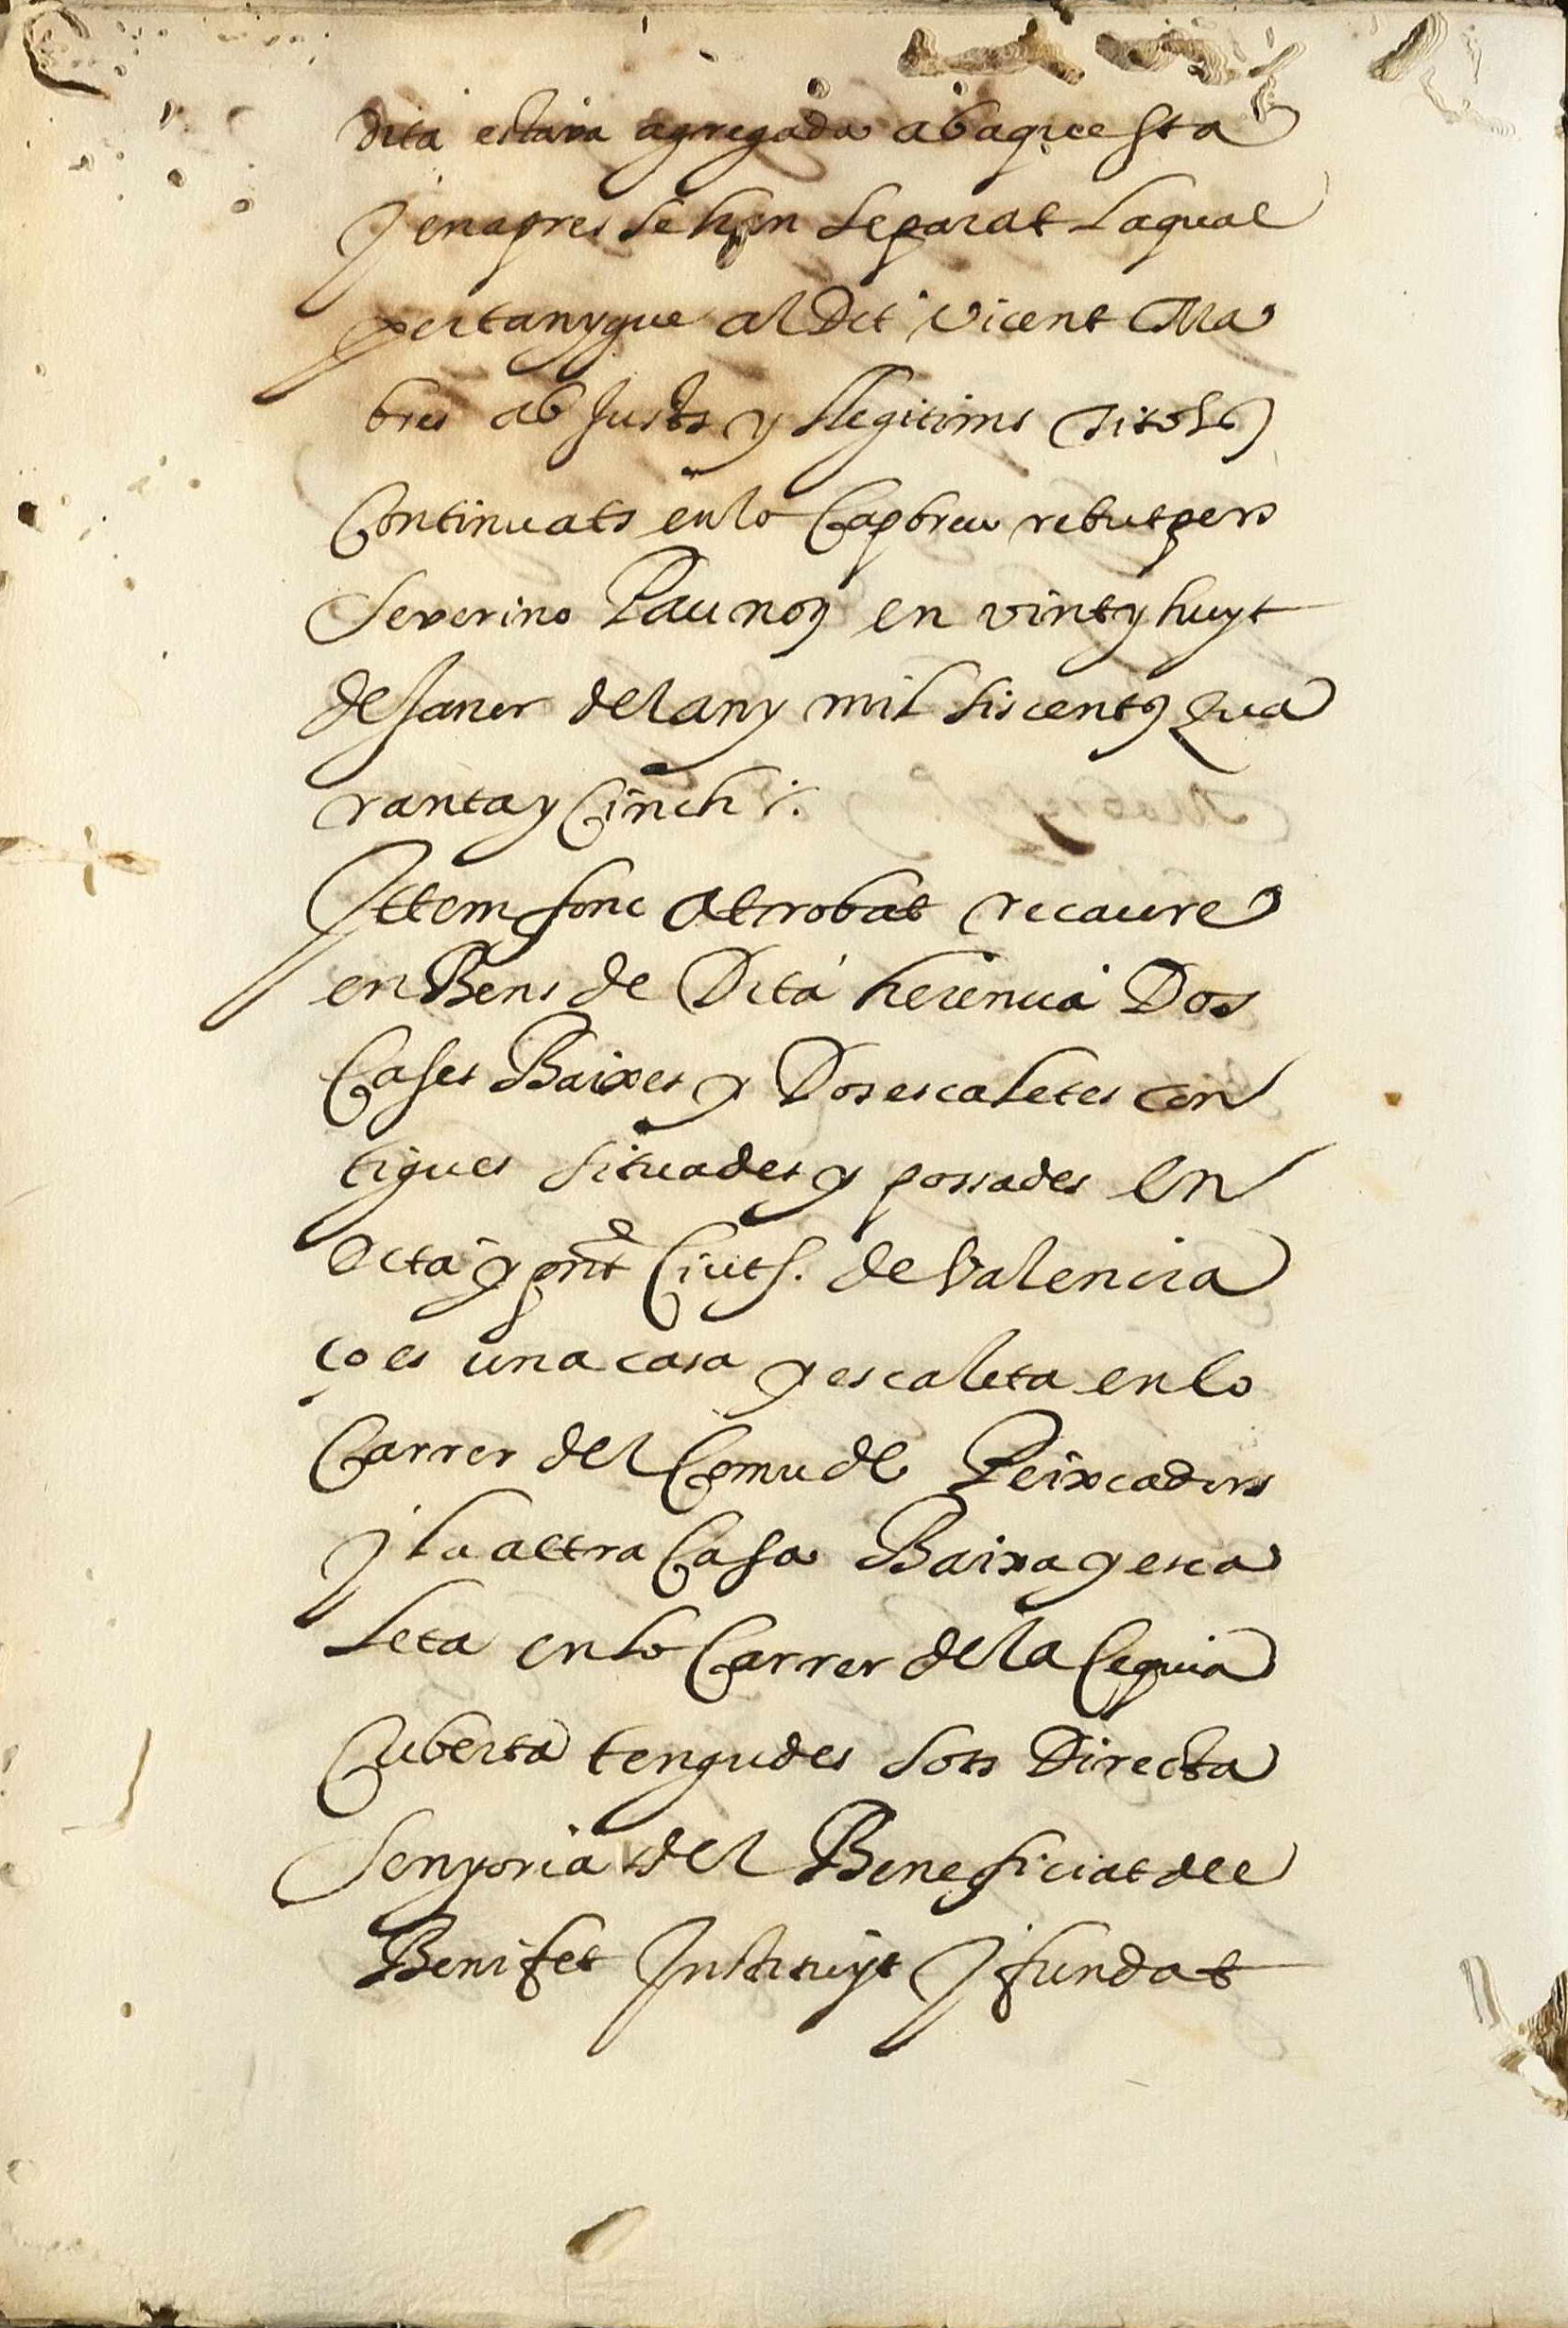 dita estava agregada ab aquesta
J en apres se han separat laqual
pertanygue al dit Vicent Ma
bres ab Justs y llegitims titols
Continuats en lo Capbreu rebut per
Severino Pau noṫ en vint y huyt
de Janer del any mil siscents qua
ranta y Cinch /.
Ittem fonc atrobat recaure
en Bens de Dita herencia Dos
Cases Baixes y Dos escaletes con
tigues situades y possades en
dita y pnt Ciutt. de Valencia
ço es una casa y escaleta en lo
Carrer del Comu de Peixcadors
J la altra Casa Baixa y esca
leta en lo Carrer de la Cequia
Cuberta tengudes sots Directa
Senyoria del Beneficiat del
Benifet Instituyt J fundat